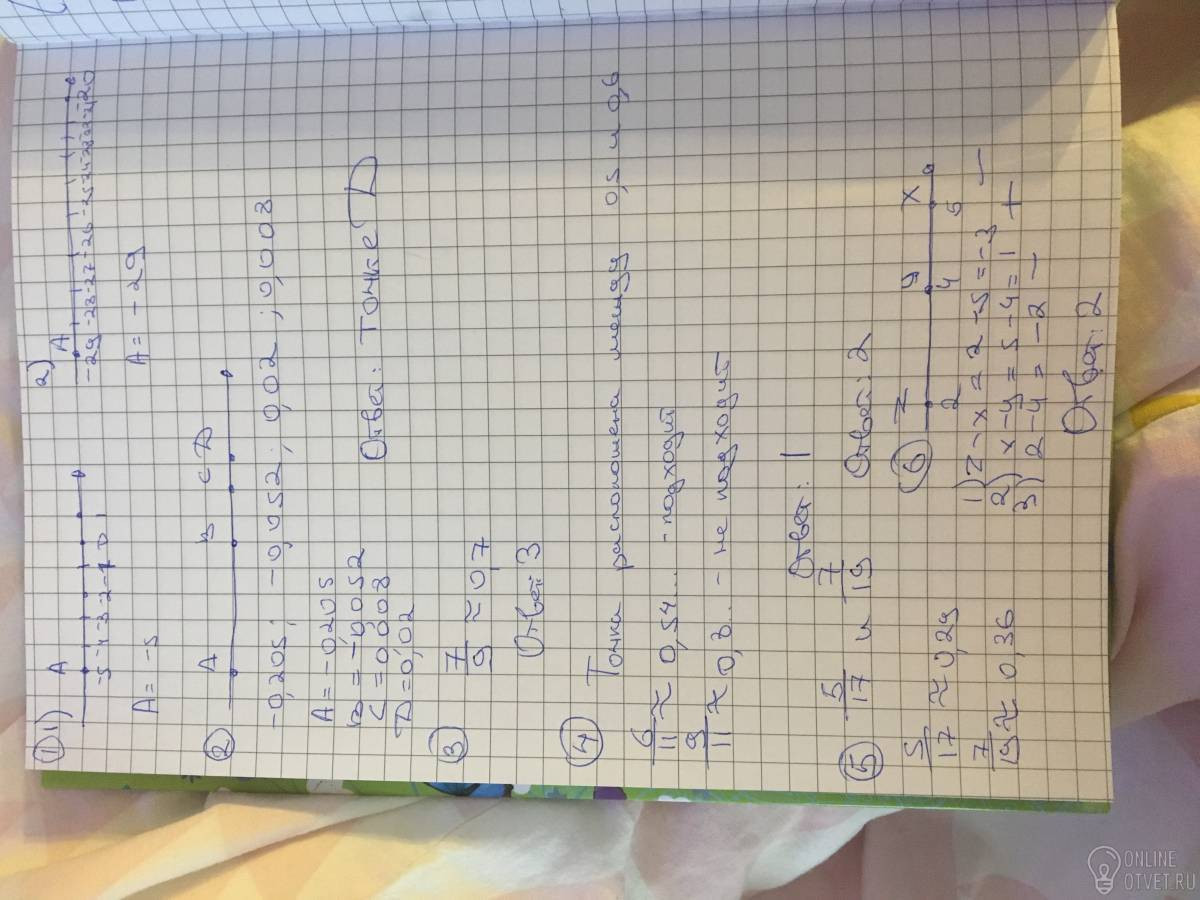 ① 1) A
-5 -4 -3 -2 -1 0 1
A = -5
2) A
-29 -28 -27 -26 -25 -24 -23 -22 -21 -20
A = -29
② A B C D
-0,205; -0,052; 0,02; 0,008
A = -0,205
B = -0,052
C = 0,008
D = 0,02
Ответ: точке D
③ 7/9 ≈ 0,7
Ответ: 3
④ Точка расположена между 0,5 и 0,6
6/11 ≈ 0,54... - подходит
9/11 ≈ 0,8... - не подходит
Ответ: 1
⑤ 5/17 и 7/19
5/17 ≈ 0,29
7/19 ≈ 0,36
Ответ: 2
⑥ z y x
2 4 5
1) z - x = 2 - 5 = -3 -
2) x - y = 5 - 4 = 1 +
3) 2 - 4 = -2 -
Ответ: 2
ONLINE
OTVET.RU